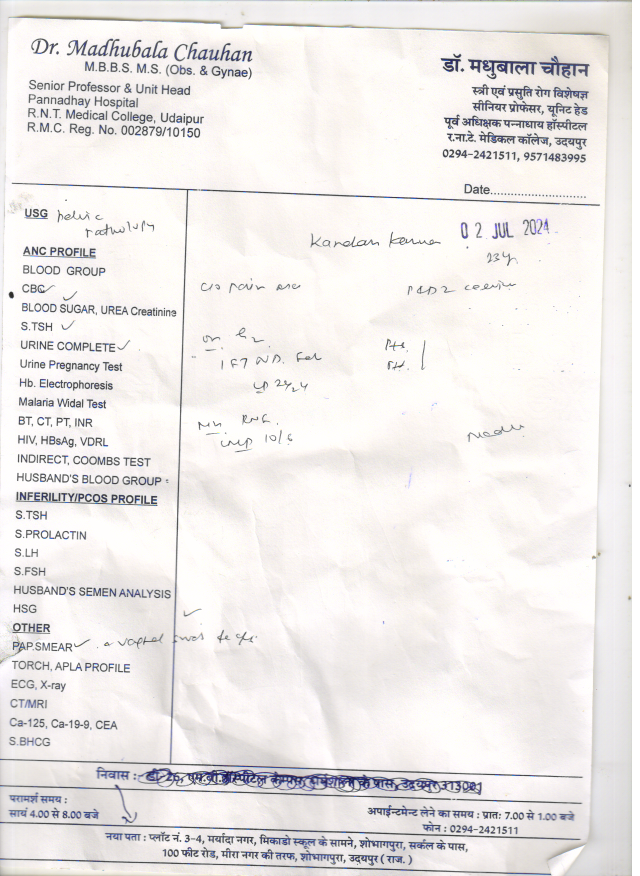 Dr. Madhubala Chauhan
M.B.B.S. M.S. (Obs. & Gynae)
Senior Professor & Unit Head
Pannadhay Hospital
R.N.T. Medical College, Udaipur
R.M.C. Reg. No. 002879/10150
डॉ. मधुबाला चौहान
स्त्री एवं प्रसुति रोग विशेषज्ञ
सीनियर प्रोफेसर, यूनिट हेड
पूर्व अधिक्षक पन्नाधाय हॉस्पीटल
र.ना.टे. मेडिकल कॉलेज, उदयपुर
0294-2421511, 9571483995
Date............................
02 JUL 2024
23y
USG pelvic
ANC PROFILE
BLOOD GROUP
CBC ✓
c/o pain
BLOOD SUGAR, UREA Creatinine
S.TSH ✓
URINE COMPLETE ✓
Urine Pregnancy Test
Hb. Electrophoresis
Malaria Widal Test
BT, CT, PT, INR
HIV, HBsAg, VDRL
LMP 10/6
INDIRECT, COOMBS TEST
HUSBAND'S BLOOD GROUP :
INFERILITY/PCOS PROFILE
S.TSH
S.PROLACTIN
S.LH
S.FSH
HUSBAND'S SEMEN ANALYSIS
HSG
OTHER
PAP.SMEAR ✓
TORCH, APLA PROFILE
ECG, X-ray
CT/MRI
Ca-125, Ca-19-9, CEA
S.BHCG
निवास :
परामर्श समय :
सायं 4.00 से 8.00 बजे
अपाईन्टमेन्ट लेने का समय : प्रातः 7.00 से 1.00 बजे
फोन : 0294-2421511
नया पता : प्लॉट नं. 3-4, मर्यादा नगर, मिकाडो स्कूल के सामने, शोभागपुरा, सर्कल के पास,
100 फीट रोड, मीरा नगर की तरफ, शोभागपुरा, उदयपुर ( राज. )